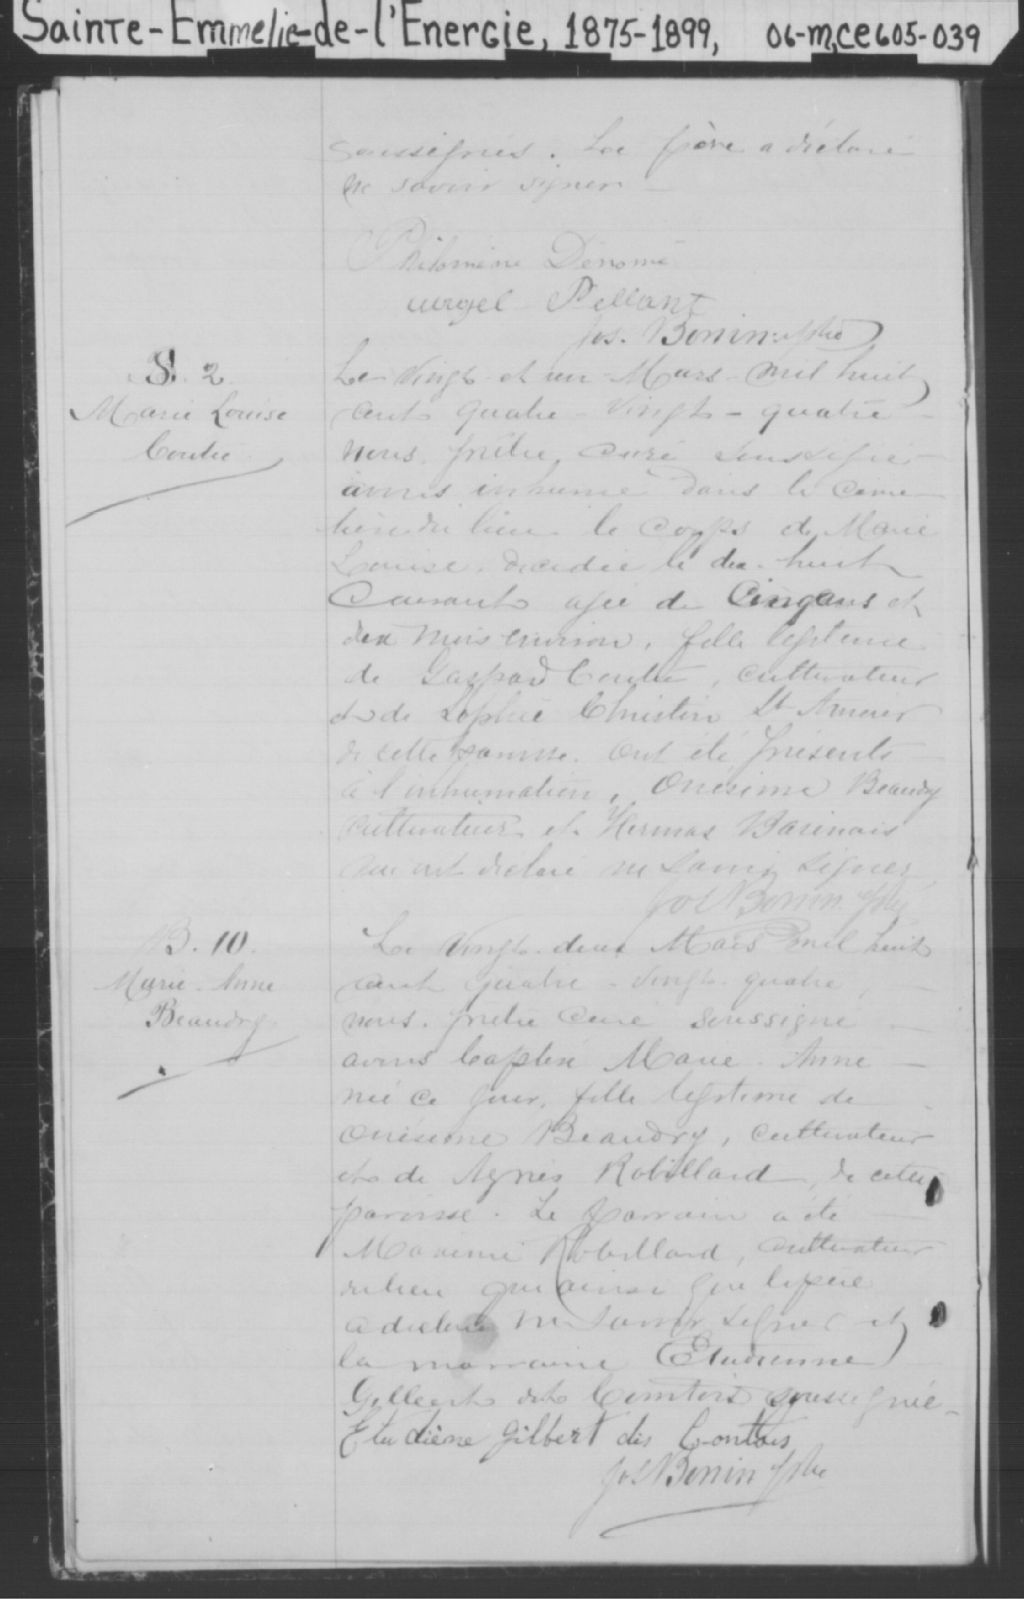 Sainte-Emmelie-de-l'Energie, 1875-1899, 06-M,CE605-039
soussignés. Le père a déclaré
ne savoir signer
Philomène Dénomé
urgel Pellant
Jos. Bonin ptre
S. 2
Marie Louise
Coutu
Le Vingt et un Mars mil huit
cent quatre-Vingt-quatre
nous prêtre curé soussigné
avons inhumé dans le cime
tière du lieu le corps de Marie
Louise, décédée le dix-huit
Courant agée de Cinq ans et
dix mois environ, fille légitime
de Gaspard Coutu, cultivateur
et de Sophie Christin St Amour
de cette paroisse. Ont été présents
à l'inhumation, Onésime Beaudry
cultivateur et Hermas
qui ont déclaré ne savoir signer
Jos Bonin ptre
B. 10.
Marie-Anne
Beaudry
Le Vingt-deux Mars mil huit
cent quatre-vingt-quatre,
nous prêtre Curé soussigné
avons baptisé Marie-Anne
née ce jour, fille légitime de
Onésime Beaudry, cultivateur
et de Agnès Robillard, de cette
paroisse. Le parrain a été
Maxime Robillard, cultivateur
du lieu qui ainsi que le père
a déclaré ne savoir signer et
la marraine Etudienne
Gilbert dit Comtois soussignée
Etudiène Gilbert dis Contois
Jos Bonin ptre